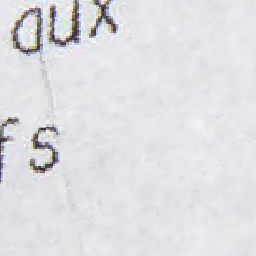 aux
fs